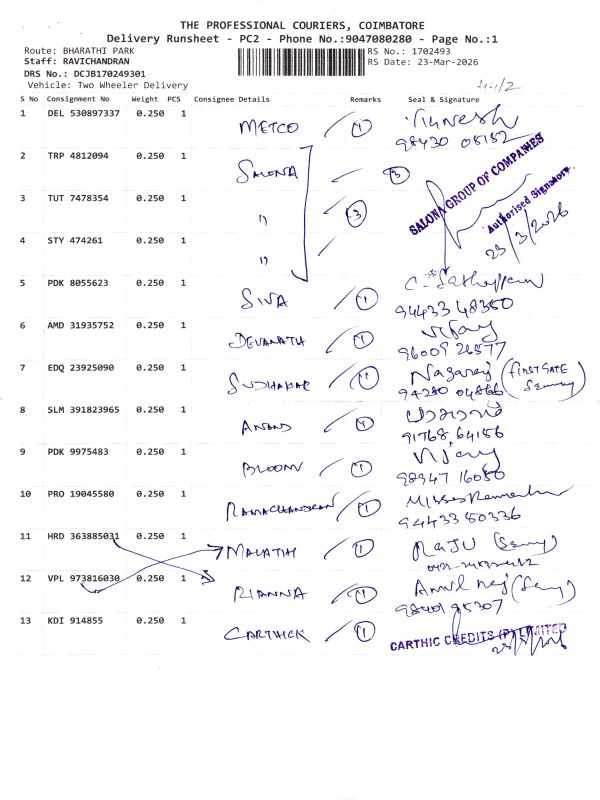 THE PROFESSIONAL COURIERS, COIMBATORE
Delivery Runsheet - PC2 - Phone No.:9047080280 - Page No.:1
Route: BHARATHI PARK
Staff: RAVICHANDRAN
DRS No.: DCJB170249301
Vehicle: Two Wheeler Delivery
RS No.: 1702493
RS Date: 23-Mar-2026
S No Consignment No Weight PCS Consignee Details Remarks Seal & Signature
1 DEL 530897337 0.250 1 METCO 1
98430 05152
2 TRP 4812094 0.250 1 SALONA 3
SALONA GROUP OF COMPANIES
Authorised Signatory
23/3/2026
3 TUT 7478354 0.250 1 " 3
4 STY 474261 0.250 1 "
5 PDK 8055623 0.250 1 SIVA 1
94433 48350
6 AMD 31935752 0.250 1 DEVANATH 1 Vijay
96009 26577
7 EDQ 23925090 0.250 1 SUDHAKAR 1 Nagaraj (FIRST GATE
94280 04866
8 SLM 391823965 0.250 1 ANAND 1
91768 64156
9 PDK 9975483 0.250 1 BLOOM 1 Vijay
98947 16050
10 PRO 19045580 0.250 1 RAMACHANDRAN 1
94433 50336
11 HRD 363885031 0.250 1 MALATHI 1 RAJU
12 VPL 973816030 0.250 1 RIANNA 1
98401 95307
13 KDI 914855 0.250 1 CARTHICK 1
CARTHIC CREDITS (P) LIMITED